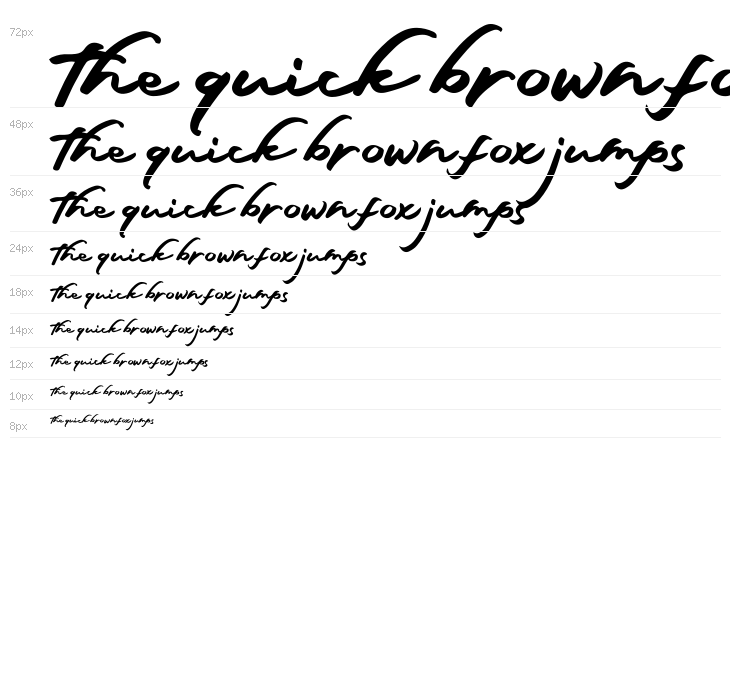 72px the quick brown fo
48px the quick brown fox jumps
36px the quick brown fox jumps
24px the quick brown fox jumps
18px the quick brown fox jumps
14px the quick brown fox jumps
12px the quick brown fox jumps
10px the quick brown fox jumps
8px the quick brown fox jumps